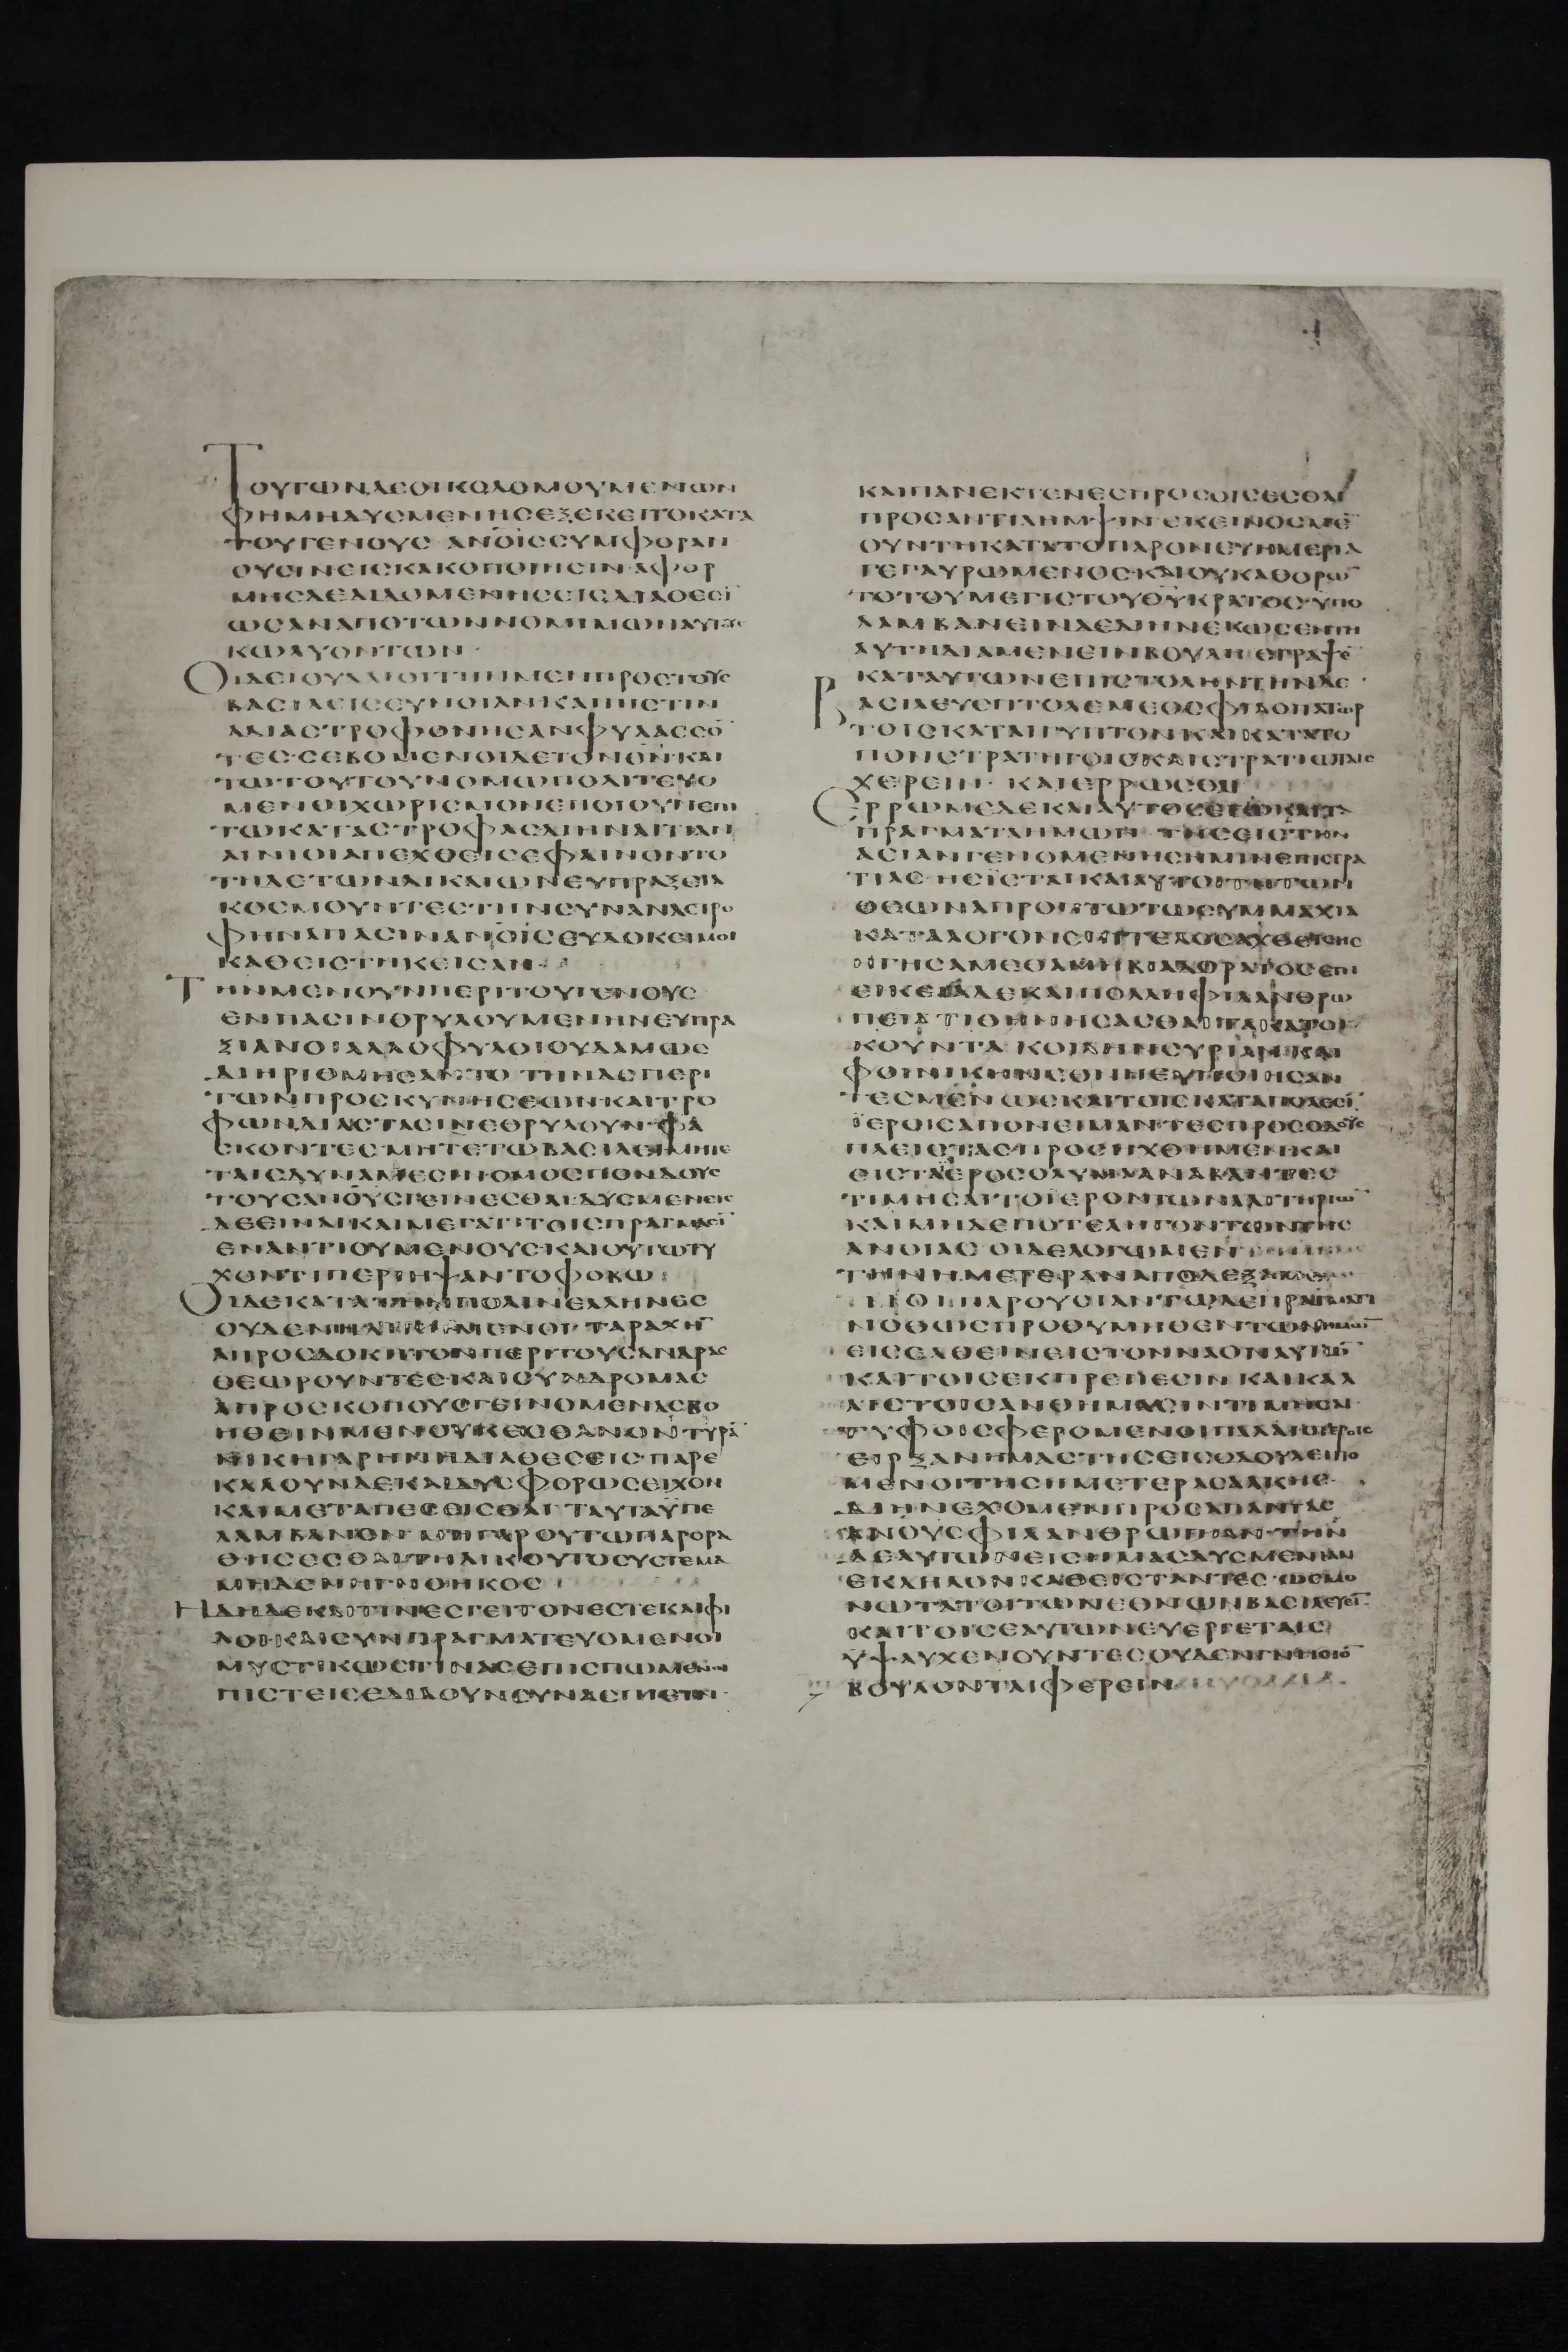 ΤΟΥΤΩΝΔΕΟΙΚΟΔΟΜΟΥΜΕΝΩΝ
ΦΗΜΗΔΥΣΜΕΝΗΣΕΞΕΚΕΙΤΟΚΑΤΑ
ΤΟΥΓΕΝΟΥΣ ΑΝΟΙΣΣΥΜΦΟΡΑΝ
ΟΥΣΙΝΕΙΣΚΑΚΟΠΟΙΗΣΙΝ ΑΦΟΡ
ΜΗΣΔΕΔΙΔΟΜΕΝΗΣΕΙΣΔΙΑΘΕΣῙ
ΩΣΑΝΑΠΟΤΩΝΝΟΜΙΜΩΝΑΥΤΟΥΣ
ΚΩΛΥΟΝΤΩΝ·
ΟΙΔΕΙΟΥΔΑΙΟΙΤΗΝΜΕΝΠΡΟΣΤΟΥΣ
ΒΑΣΙΛΕΙΣΕΥΝΟΙΑΝΚΑΙΠΙΣΤΙΝ
ΑΔΙΑΣΤΡΟΦΟΝΗΣΑΝΦΥΛΑΣΣΟ̄
ΤΕΣ·ΣΕΒΟΜΕΝΟΙΔΕΤΟΝΘΝΚΑΙ
ΤΩΤΟΥΤΟΥΝΟΜΩΠΟΛΙΤΕΥΟ
ΜΕΝΟΙΧΩΡΙΣΜΟΝΕΠΟΙΟΥΝΕΠΙ
ΤΩΚΑΤΑΣΤΡΟΦΑΣΔΙΗΝΑΙΤΙΑΝ
ΑΙΝΙΟΙΑΠΕΧΘΕΙΣΕΦΑΙΝΟΝΤΟ
ΤΗΔΕΤΩΝΔΙΚΑΙΩΝΕΥΠΡΑΞΕΙΑ
ΚΟΣΜΟΥΝΤΕΣΤΗΝΣΥΝΑΝΑΣΤΡΟ
ΦΗΝΑΠΑΣΙΝΑΝΟΙΣΕΥΔΟΚΙΜΟΙ
ΚΑΘΕΙΣΤΗΚΕΙΣΑΝ·
ΤΗΝΜΕΝΟΥΝΠΕΡΙΤΟΥΓΕΝΟΥΣ
ΕΝΠΑΣΙΝΘΡΥΛΟΥΜΕΝΗΝΕΥΠΡΑ
ΞΙΑΝΟΙΑΛΛΟΦΥΛΟΙΟΥΔΑΜΩΣ
ΔΙΗΡΙΘΜΗΣΑΝΤΟ ΤΗΝΔΕΠΕΡΙ
ΤΩΝΠΡΟΣΚΥΝΗΣΕΩΝΚΑΙΤΡΟ
ΦΩΝΔΙΑΣΤΑΣΙΝΕΘΡΥΛΟΥΝ·ΦΑ
ΣΚΟΝΤΕΣ·ΜΗΤΕΤΩΒΑΣΙΛΕΙΜΗΤΕ
ΤΑΙΣΔΥΝΑΜΕΣΙΝΟΜΟΣΠΟΝΔΟΥΣ
ΤΟΥΣΑΝΟΥΣΓΕΙΝΕΣΘΑΙ·ΔΥΣΜΕΝΕΙΣ
ΔΕΕΙΝΑΙΚΑΙΜΕΓΑΤΙΤΟΙΣΠΡΑΓΜΑΣῙ
ΕΝΑΝΤΙΟΥΜΕΝΟΥΣ·ΚΑΙΟΥΤΩΤΥ
ΧΟΝΤΙΠΕΡΙΗΨΑΝΤΟΦΟΒΩ
ΟΙΔΕΚΑΤΑΤΗΝΠΟΛΙΝΕΛΛΗΝΕΣ
ΟΥΔΕΝΗΔΙΚΗΜΕΝΟΙ·ΤΑΡΑΧΗ̄
ΑΠΡΟΣΔΟΚΗΤΟΝΠΕΡΙΤΟΥΣΑΝΔΡΑΣ
ΘΕΩΡΟΥΝΤΕΣ·ΚΑΙΣΥΝΔΡΟΜΑΣ
ΑΠΡΟΣΚΟΠΟΥΣΓΕΙΝΟΜΕΝΑΣΒΟ
ΗΘΕΙΝΜΕΝΟΥΚΕΣΘΑΝΟΝΤΥΡᾹ
ΝΙΚΗΓΑΡΗΝΗΔΙΑΘΕΣΕΙΣ·ΠΑΡΕ
ΚΑΛΟΥΝΔΕΚΑΙΔΥΣΦΟΡΩΣΕΙΧΟΝ
ΚΑΙΜΕΤΑΠΕΣΕΙΣΘΑΙ ΤΑΥΤΑΥΠΕ
ΛΑΜΒΑΝΟΝ ΜΗΓΑΡΟΥΤΩΠΑΡΟΡΑ
ΘΗΣΕΣΘΑΙΤΗΛΙΚΟΥΤΟΣΥΣΤΕΜΑ
ΜΗΔΕΝΗΓΝΟΗΚΟΣ
ΗΔΗΔΕΚΑΙΤΙΝΕΣΓΕΙΤΟΝΕΣΤΕΚΑΙΦΙ
ΛΟΙ·ΚΑΙΣΥΝΠΡΑΓΜΑΤΕΥΟΜΕΝΟΙ
ΜΥΣΤΙΚΩΣΤΙΝΑΣΕΠΙΣΠΩΜΕΝΟΙ
ΠΙΣΤΕΙΣΕΔΙΔΟΥΝΣΥΝΑΣΠΙΕΙΝ·
ΚΑΙΠΑΝΕΚΤΕΝΕΣΠΡΟΣΟΙΣΕΣΘΑΙ
ΠΡΟΣΑΝΤΙΛΗΜΨΙΝ ΕΚΕΙΝΟΣΜΕ̄
ΟΥΝΤΗΚΑΤΑΤΟΠΑΡΟΝΕΥΗΜΕΡΙΑ
ΓΕΓΑΥΡΩΜΕΝΟΣ·ΚΑΙΟΥΚΑΘΟΡΩ̄
ΤΟΤΟΥΜΕΓΙΣΤΟΥΘΥΚΡΑΤΟΣ·ΥΠΟ
ΛΑΜΒΑΝΕΙΝΔΕΔΙΗΝΕΚΩΣΕΝΤΗ
ΑΥΤΗΔΙΑΜΕΝΕΙΝΒΟΥΛΗ ΕΓΡΑΨΕ̄
ΚΑΤΑΥΤΩΝΕΠΙΣΤΟΛΗΝΤΗΝΔΕ·
ΒΑΣΙΛΕΥΣΠΤΟΛΕΜΕΟΣΦΙΛΟΠΑΤΩΡ
ΤΟΙΣΚΑΤΑΙΓΥΠΤΟΝΚΑΙΚΑΤΑΤΟ
ΠΟΝΣΤΡΑΤΗΓΟΙΣΚΑΙΣΤΡΑΤΙΩΤΑΙΣ
ΧΕΡΕΙΝ· ΚΑΙΕΡΡΩΣΘΑΙ
ΕΡΡΩΜΕΔΕΚΑΙΑΥΤΟΣΕΓΩΚΑΙΤΑ
ΠΡΑΓΜΑΤΑΗΜΩΝ ΤΗΣΕΙΣΤΗΝ
ΑΣΙΑΝΓΕΝΟΜΕΝΗΣΗΜΙΝΕΠΙΣΤΡΑ
ΤΙΑΣ·ΗΣΙΣΤΑΙΚΑΙΑΥΤΟΙΤΗΤΩΝ
ΘΕΩΝΑΠΡΟΠΤΩΤΩΣΥΜΜΑΧΙΑ
ΚΑΤΑΛΟΓΟΝΕΠΙΤΕΛΟΣΑΧΘΕΙΣΗΣ
ΗΓΗΣΑΜΕΘΑΜΗΒΙΑΔΟΡΑΤΟΣΕΠΙ
ΕΙΚΕΙΑΔΕΚΑΙΠΟΛΛΗΦΙΛΑΝΘΡΩ
ΠΕΙΑΤΙΘΗΝΗΣΑΣΘΑΙΤΑΚΑΤΟΙ
ΚΟΥΝΤΑ ΚΟΙΛΗΝΣΥΡΙΑΝΚΑΙ
ΦΟΙΝΙΚΗΝΕΘΝΗΕΥΠΟΙΗΣΑΝ
ΤΕΣΜΕΝ ΩΣΚΑΙΤΟΙΣΚΑΤΑΠΟΛΕΣῙ
ΙΕΡΟΙΣΑΠΟΝΕΙΜΑΝΤΕΣΠΡΟΣΟΔΟΥΣ
ΠΛΕΙΣΤΑΣ·ΠΡΟΣΗΧΘΗΜΕΝΚΑΙ
ΕΙΣΤΑΙΕΡΟΣΟΛΥΜΑΑΝΑΒΑΝΤΕΣ
ΤΙΜΗΣΑΙΤΟΙΕΡΟΝΤΩΝΑΛΙΤΗΡΙΩ̄
ΚΑΙΜΗΔΕΠΟΤΕΛΗΓΟΝΤΩΝΤΗΣ
ΑΝΟΙΑΣ ΟΙΔΕΛΟΓΩΜΕΝ
ΤΗΝΗΜΕΤΕΡΑΝΑΠΟΔΕΞΑΜΕΝΟΙ
ΠΑΡΟΥΣΙΑΝΤΩΔΕΠΡΑΓΜΑΤΙ
ΝΟΘΩΣΠΡΟΘΥΜΗΘΕΝΤΩΝΗΜΩ̄
ΕΙΣΕΛΘΕΙΝΕΙΣΤΟΝΝΑΟΝΑΥΤΩ̄
ΚΑΙΤΟΙΣΕΚΠΡΕΠΕΣΙΝ ΚΑΙΚΑΛ
ΛΙΣΤΟΙΣΑΝΘΗΜΑΣΙΝΤΙΜΗΣΑΙ
ΤΥΦΟΙΣΦΕΡΟΜΕΝΟΙΠΑΛΑΙΟΤΕΡΟΙΣ
ΕΙΡΞΑΝΗΜΑΣΤΗΣΕΙΣΟΔΟΥΛΕΙΠΟ
ΜΕΝΟΙΤΗΣΗΜΕΤΕΡΑΣΑΛΚΗΣ·
ΔΙΗΝΕΧΟΜΕΝΠΡΟΣΑΠΑΝΤΑΣ
ΑΝΟΥΣΦΙΛΑΝΘΡΩΠΙΑΝ·ΤΗΝ
ΔΕΑΥΤΩΝΕΙΣΗΜΑΣΔΥΣΜΕΝΙΑΝ
ΕΚΔΗΛΟΝΚΑΘΕΙΣΤΑΝΤΕΣ·ΩΣΜΟ
ΝΩΤΑΤΟΙΤΩΝΕΘΝΩΝΒΑΣΙΛΕΥΣῙ
ΚΑΙΤΟΙΣΕΑΥΤΩΝΕΥΕΡΓΕΤΑΙΣ
ΥΨΑΥΧΕΝΟΥΝΤΕΣΟΥΔΕΝΓΝΗΣΙΟ̄
ΒΟΥΛΟΝΤΑΙΦΕΡΕΙΝ